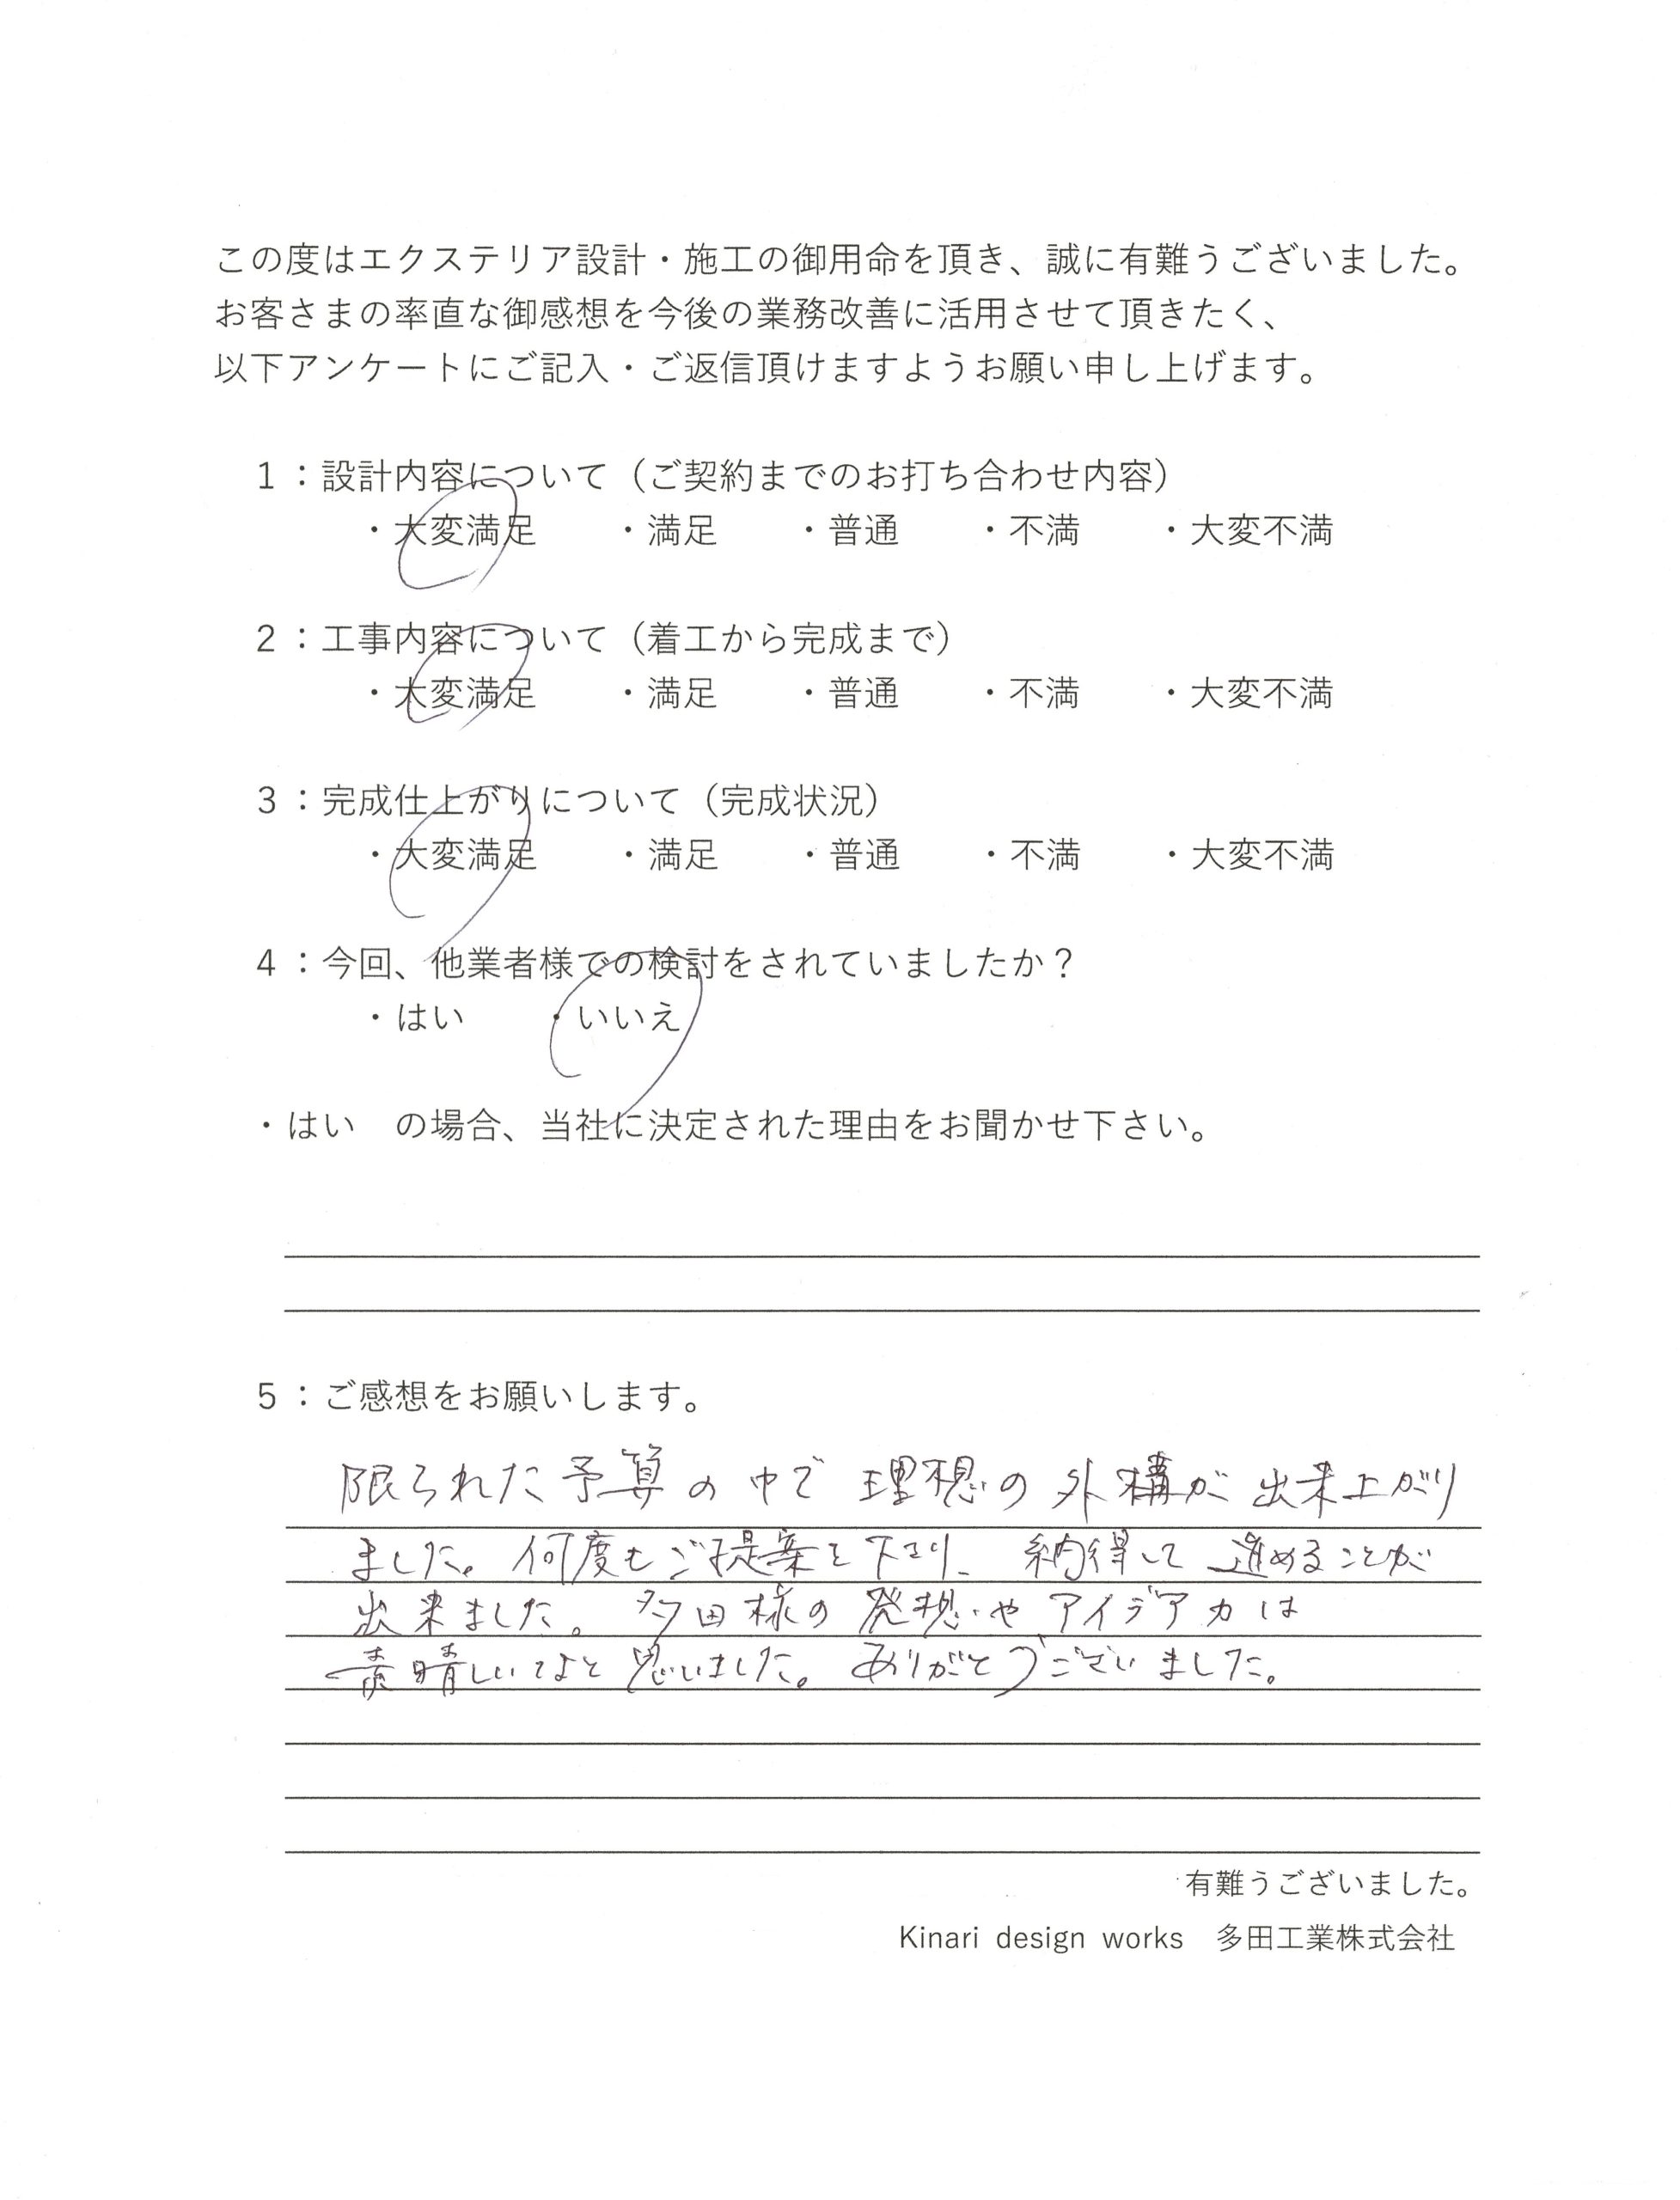 この度はエクステリア設計・施工の御用命を頂き、誠に有難うございました。
お客さまの率直な御感想を今後の業務改善に活用させて頂きたく、
以下アンケートにご記入・ご返信頂けますようお願い申し上げます。
1：設計内容について（ご契約までのお打ち合わせ内容）
・大変満足　・満足　・普通　・不満　・大変不満
2：工事内容について（着工から完成まで）
・大変満足　・満足　・普通　・不満　・大変不満
3：完成仕上がりについて（完成状況）
・大変満足　・満足　・普通　・不満　・大変不満
4：今回、他業者様での検討をされていましたか？
・はい　・いいえ
・はい　の場合、当社に決定された理由をお聞かせ下さい。
5：ご感想をお願いします。
限られた予算の中で理想の外構が出来上がり
ました。何度もご提案を下さり、納得して進めることが
出来ました。多田様の発想やアイデア力は
素晴しいなと思いました。ありがとうございました。
有難うございました。
Kinari design works　多田工業株式会社